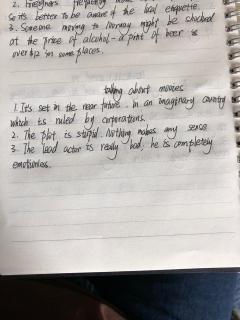 2. Foreigners
So it's better to be aware of the bad etiquette.
3. Someone moving to Norway might be shocked
at the price of alcohol - a print of beer is
over $12 in some places.
talking about movies
1. It's set in the near future. In an imaginary country
which is ruled by corporations.
2. The plot is stupid. Nothing makes any sense
3. The lead actor is really bad, he is completely
emotionless.